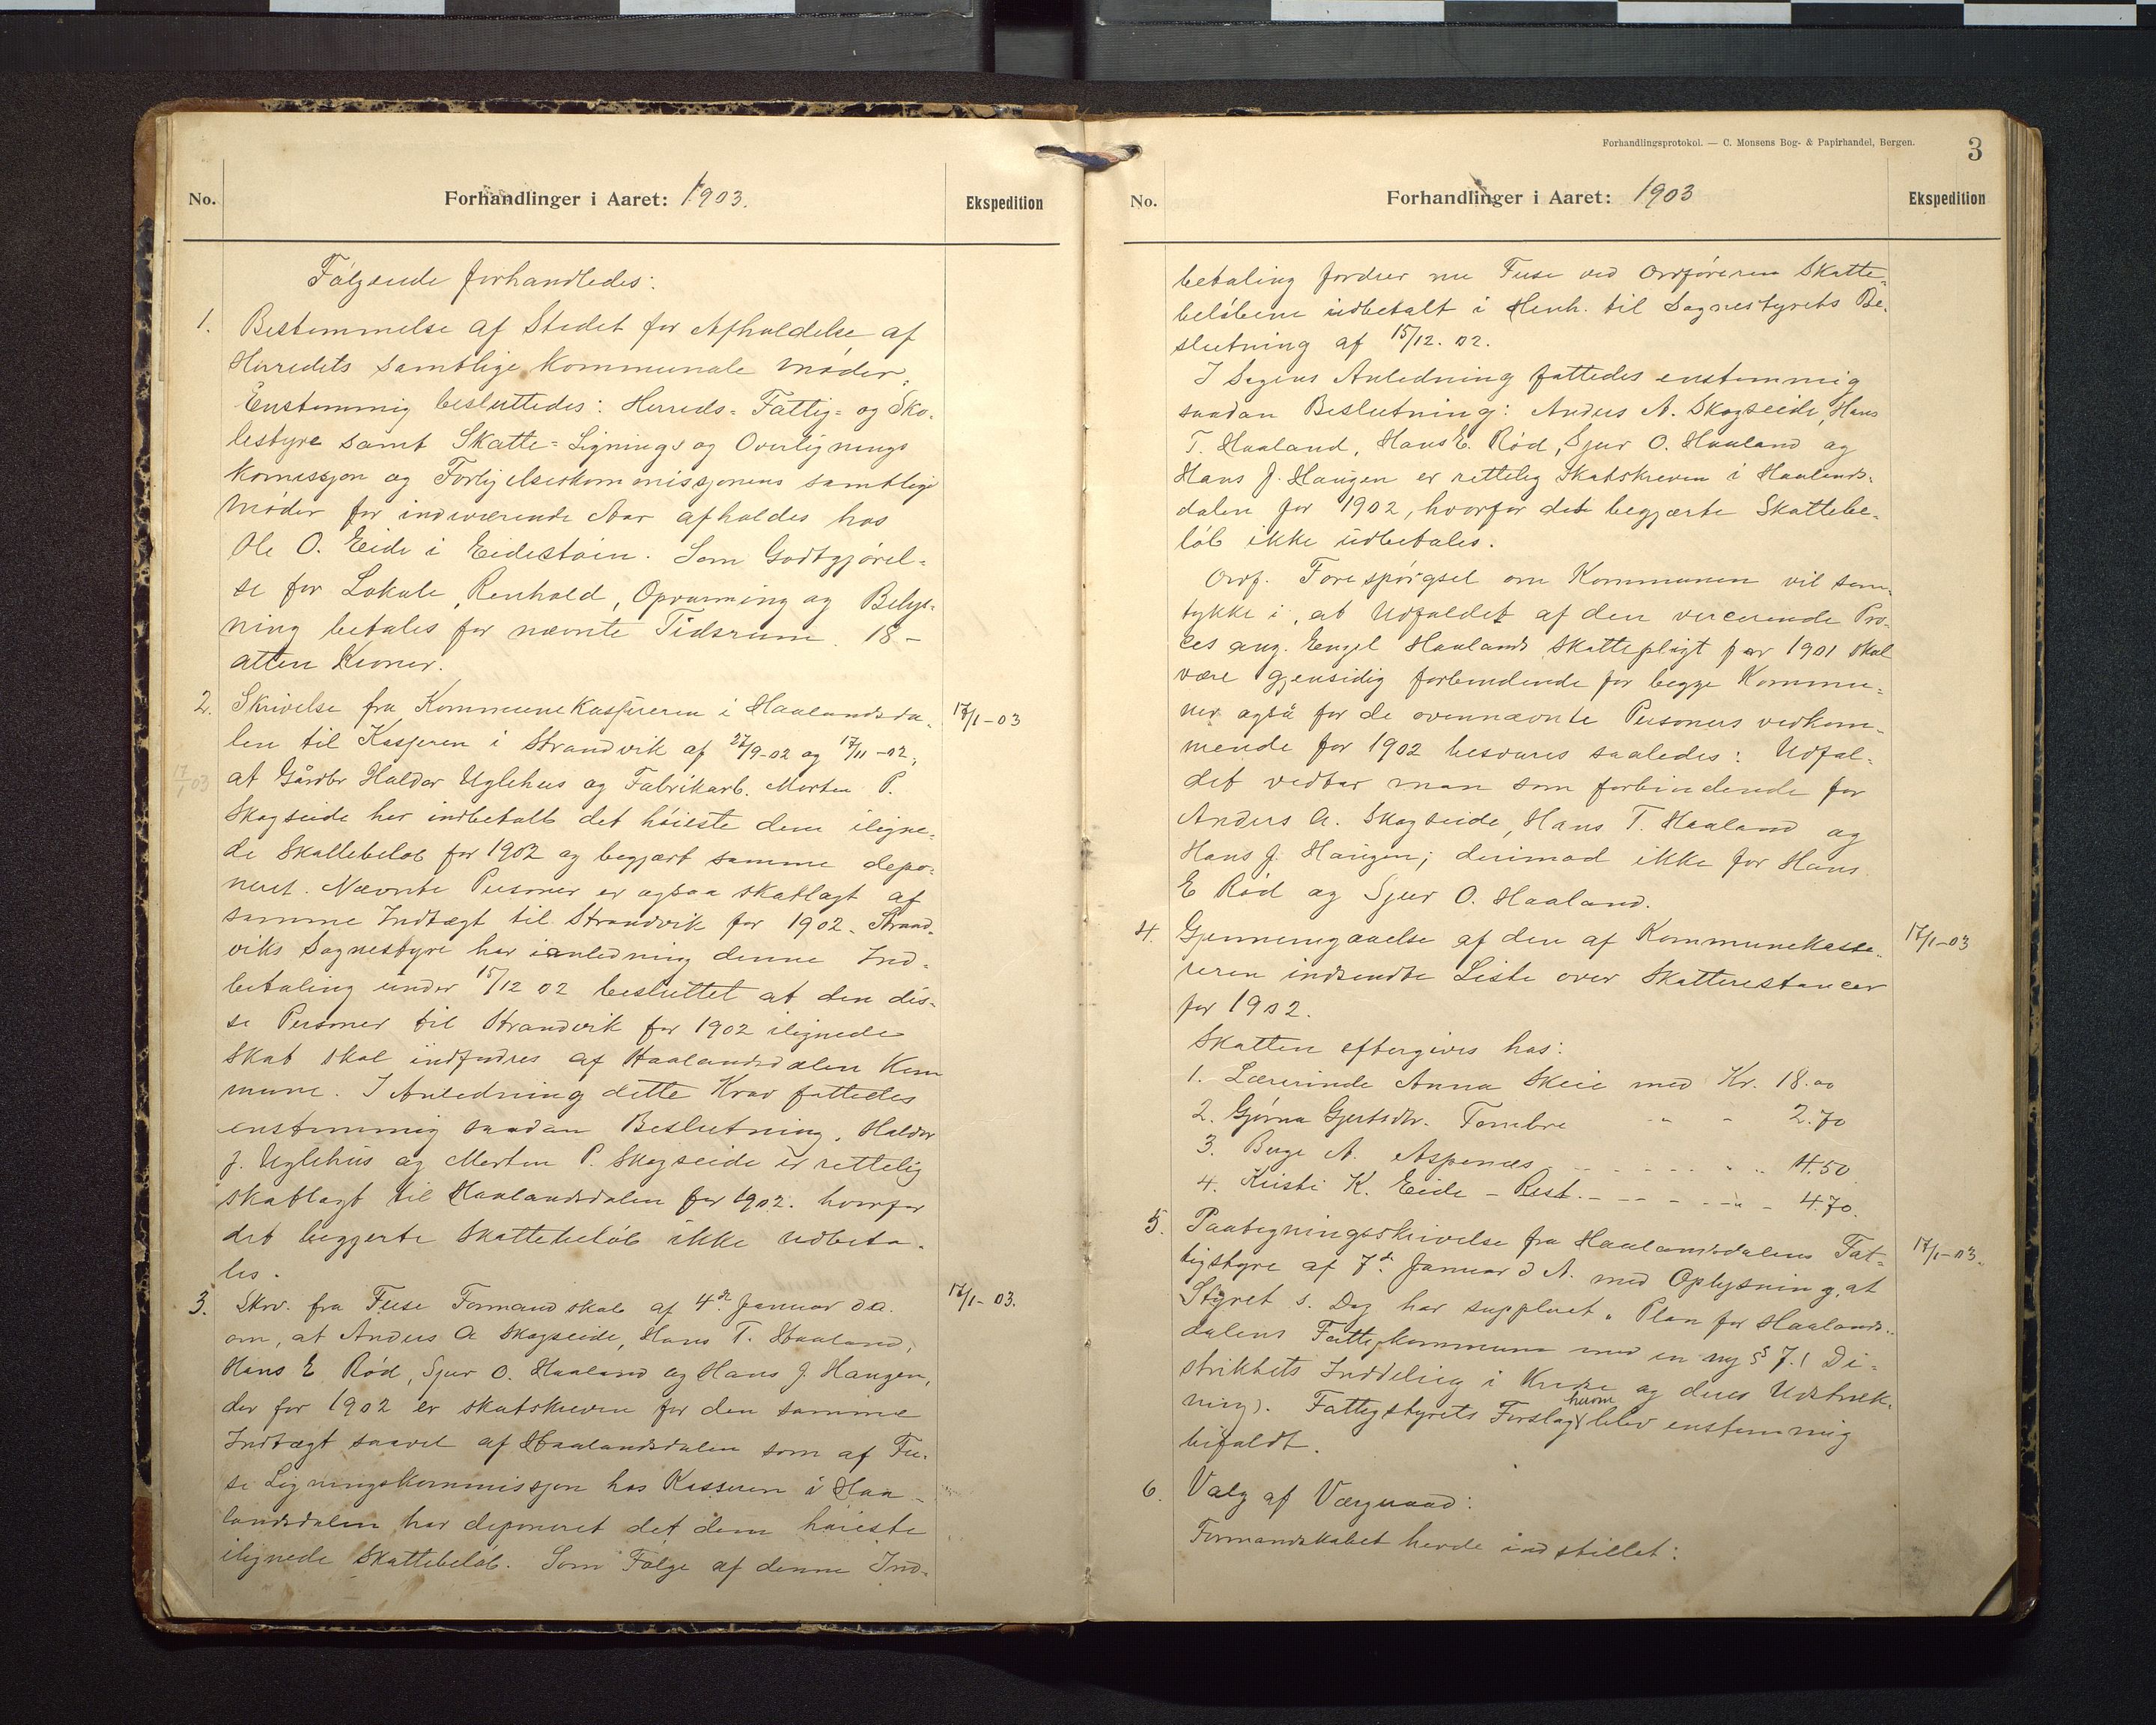 No.
Forhandlinger i Aaret: 1903.
Ekspedition
Følgende forhandledes:
1. Bestemmelse af Stedet for Afholdelse af
Herredets samtlige kommunale Møder.
Enstemmig besluttedes: Herreds- Fattig- og Sko-
lestyre samt Skatte- Lignings og Overlignings
komissjon og Forligelseskommissjonens samtlige
Møder for indeværende Aar afholdes hos
Ole O. Eide i Eidestøin. Som Godtgjørel-
se for Lokale, Renhold, Opvarming og Belys-
ning betales for nævnte Tidsrum 18 –
atten Kroner.
2. Skrivelse fra Kommunekasjereren i Haalandsda- 17/1-03
len til Kasjeren i Strandvik af 27/9-02 og 17/11-02,
17/1 03
at Gårdbr Haldor Uglehus og Fabrikarb. Morten P.
Skogseide har indbetalt det høieste dem iligne-
de Skattebeløb for 1902 og begjært samme depo-
neret. Nævnte Personer er ogsaa skatlagt af
samme Indtægt til Strandvik for 1902. Strand-
viks Sognestyre har ianledning denne Ind-
betaling under 15/12 02 besluttet at den dis-
se Personer til Strandvik for 1902 ilignede
Skat skal indfordres af Haalandsdalen Kom
mune. I Anledning dette Krav fattedes
enstemmig saadan Beslutning. Haldor
J. Uglehus og Morten P. Skogseide er rettelig
skatlagt til Haalandsdalen for 1902. hvorfor
det begjerte Skattebeløb ikke udbeta-
les.
3. Skrv. fra Fuse Formandskab af 4de Januar d a. 17/1-03.
om, at Anders A Skogseide, Hans T. Haaland,
Hans E Rød, Sjur O. Haaland og Hans J. Haugen,
der for 1902 er skatskreven for den samme
Indtægt saavel af Haalandsdalen som af Fu-
se Ligningskommissjon hos Kasseren i Haa-
landsdalen har deponeret det dem høieste
ilignede Skattebeløb. Som Følge af denne Ind-
Forhandlingsprotokol. — C. Monsens Bog- & Papirhandel, Bergen.
3
No.
Forhandlinger i Aaret: 1903
Ekspedition
betaling fordrer nu Fuse ved Ordføreren Skatte-
beløbene udbetalt i Henh. til Sognestyrets Be-
slutning af 15/12. 02.
I Sagens Anledning fattedes enstemmig
saadan Beslutning: Anders A. Skogseide, Hans
T. Haaland, Hans E. Rød, Sjur O. Haaland og
Hans J. Haugen er rettelig Skatskreven i Haalands-
dalen for 1902, hvorfor det begjærte Skattebe-
løb ikke udbetales.
Ordf. Forespørgsel om Kommunen vil sam-
tykke i, at Udfaldet af den verserende Pro-
ces ang. Engel Haalands Skattepligt for 1901 skal
være gjensidig forbindende for begge Kommu-
ner også for de ovennævnte Personers vedkom-
mende for 1902 besvares saaledes: Udfal-
det vedtar man som forbindende for
Anders A. Skogseide, Hans T. Haaland og
Hans J. Haugen; derimod ikke for Hans
E Rød og Sjur O. Haaland.
4. Gjennemgaaelse af den af Kommunekasse- 17/1-03
reren indsendte Liste over Skatterestancer
for 1902.
Skatten eftergives hos:
1. Lærerinde Anna Skeie med Kr. 18.00
2. Gjørna Gjertsdtr. Tombre " - 2.70
3. Berge A. Aspenæs - - - - - " " 4.50
4. Kristi K. Eide – Rest. - - - - " - 4.70.
5. Paategningsskrivelse fra Haalandsdalens Fat- 17/1-03.
tigstyre af 7de Januar d A. med Oplysning, at
Styret s. Dag har suppleret "Plan for Haalands-
dalens Fattigkommune med en ny § 7.( Di-
strikkets Inddeling i Kredse og deres Udstræk-
ning). Fattigstyrets Forslag herom blev enstemmig
bifaldt.
6. Valg af Værgeraad:
Formandskabet havde indstillet: